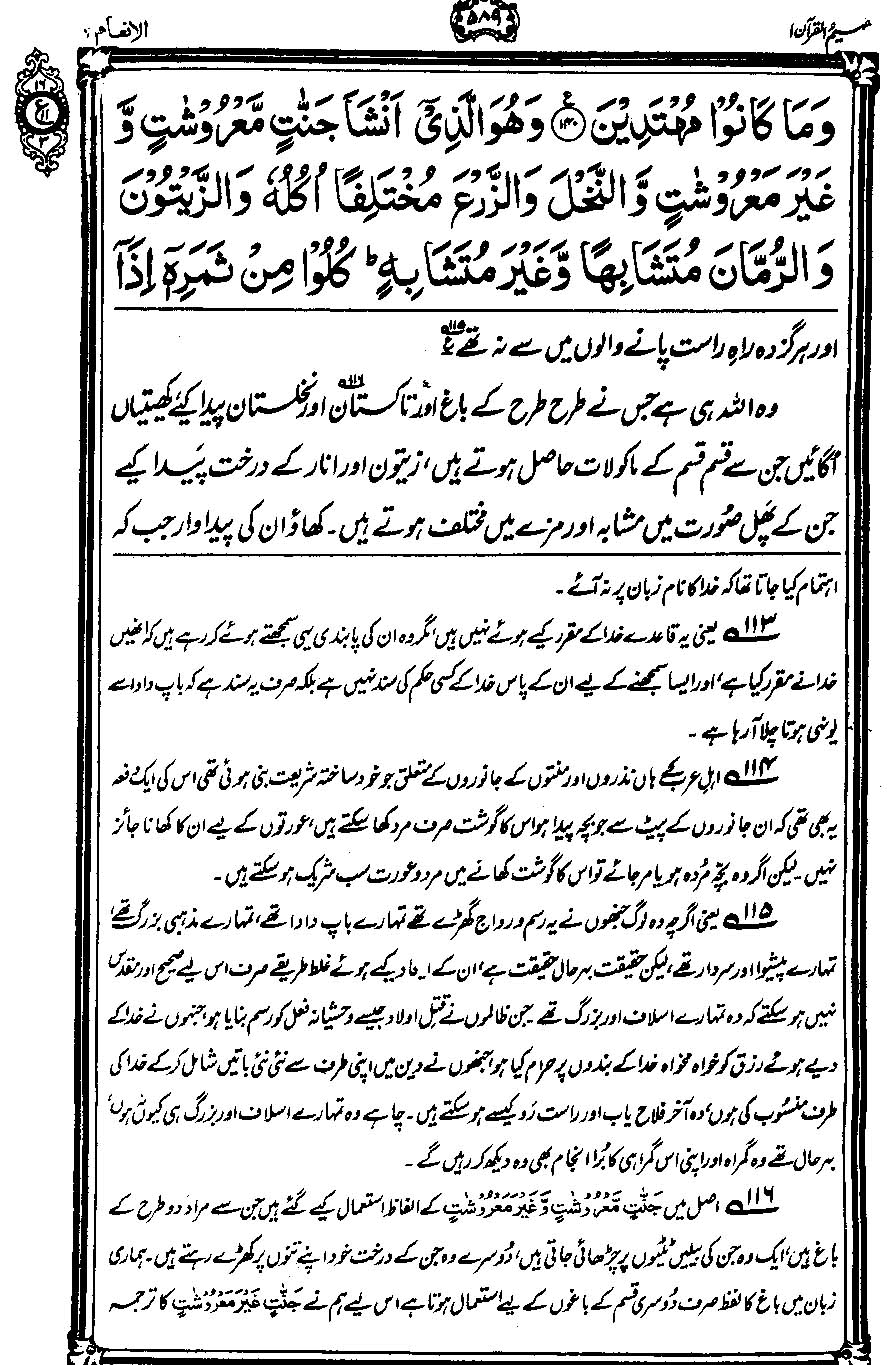 تفہیم القرآن ۱
۵۸۹
الانعام ۶
۱۶
ع
۱۱
۳
وَمَا كَانُوْا مُهْتَدِيْنَ ۱۴۰ وَهُوَ الَّذِيْٓ اَنْشَاَ جَنّٰتٍ مَّعْرُوْشٰتٍ وَّ
غَيْرَ مَعْرُوْشٰتٍ وَّالنَّخْلَ وَالزَّرْعَ مُخْتَلِفًا اُكُلُهٗ وَالزَّيْتُوْنَ
وَالرُّمَّانَ مُتَشَابِهًا وَّغَيْرَ مُتَشَابِهٍ ؕ كُلُوْا مِنْ ثَمَرِهٖٓ اِذَآ
اور ہرگز وہ راہِ راست پانے والوں میں سے نہ تھے ۱۱۵ ع
وہ اللہ ہی ہے جس نے طرح طرح کے باغ اور تاکستان ۱۱۶ اور نخلستان پیدا کیے، کھیتیاں
اُگائیں جن سے قسم قسم کے ماکولات حاصل ہوتے ہیں، زیتون اور انار کے درخت پَیدا کیے
جن کے پھَل صُورت میں مشابہ اور مزے میں مختلف ہوتے ہیں۔ کھاؤ ان کی پیداوار جب کہ
اہتمام کیا جاتا تھا کہ خدا کا نام زبان پر نہ آئے۔
۱۱۳ یعنی یہ قاعدے خدا کے مقرر کیے ہوئے نہیں ہیں، مگر وہ ان کی پابندی یہی سمجھتے ہوئے کر رہے ہیں کہ انھیں
خدا نے مقرر کیا ہے، اور ایسا سمجھنے کے لیے ان کے پاس خدا کے کسی حکم کی سند نہیں ہے بلکہ صرف یہ سند ہے کہ باپ دادا سے
یونہی ہوتا چلا آ رہا ہے۔
۱۱۴ اہلِ عرب کے ہاں نذروں اور منتوں کے جانوروں کے متعلق جو خود ساختہ شریعت بنی ہوئی تھی اس کی ایک دفعہ
یہ بھی تھی کہ ان جانوروں کے پیٹ سے جو بچہ پیدا ہو اس کا گوشت صرف مرد کھا سکتے ہیں، عورتوں کے لیے ان کا کھانا جائز
نہیں۔ لیکن اگر وہ بچّہ مُردہ ہو یا مر جائے تو اس کا گوشت کھانے میں مرد و عورت سب شریک ہو سکتے ہیں۔
۱۱۵ یعنی اگرچہ وہ لوگ جنھوں نے یہ رسم و رواج گھڑے تھے تمہارے باپ دادا تھے، تمہارے مذہبی بزرگ تھے،
تمہارے پیشوا اور سردار تھے، لیکن حقیقت بہر حال حقیقت ہے، ان کے ایجاد کیے ہوئے غلط طریقے صرف اس لیے صحیح اور مقدّس
نہیں ہو سکتے کہ وہ تمہارے اسلاف اور بزرگ تھے۔ جن ظالموں نے قتلِ اولاد جیسے وحشیانہ فعل کو رسم بنایا ہو، جنہوں نے خدا کے
دیے ہوئے رزق کو خواہ مخواہ خدا کے بندوں پر حرام کیا ہو، جنھوں نے دین میں اپنی طرف سے نئی نئی باتیں شامل کر کے خدا کی
طرف منسُوب کی ہوں، وہ آخر فلاح یاب اور راست رَو کیسے ہو سکتے ہیں۔ چاہے وہ تمہارے اسلاف اور بزرگ ہی کیوں نہ ہوں،
بہر حال تھے وہ گمراہ اور اپنی اس گمراہی کا بُرا انجام بھی وہ دیکھ کر رہیں گے۔
۱۱۶ اصل میں جَنّٰتٍ مَّعْرُوْشٰتٍ وَّغَيْرَ مَعْرُوْشٰتٍ کے الفاظ استعمال کیے گئے ہیں جن سے مراد دو طرح کے
باغ ہیں، ایک وہ جن کی بیلیں ٹٹیوں پر چڑھائی جاتی ہیں، دُوسرے وہ جن کے درخت خود اپنے تنوں پر کھڑے رہتے ہیں۔ ہماری
زبان میں باغ کا لفظ صرف دُوسری قسم کے باغوں کے لیے استعمال ہوتا ہے اس لیے ہم نے جَنّٰتٍ غَيْرَ مَعْرُوْشٰتٍ کا ترجمہ